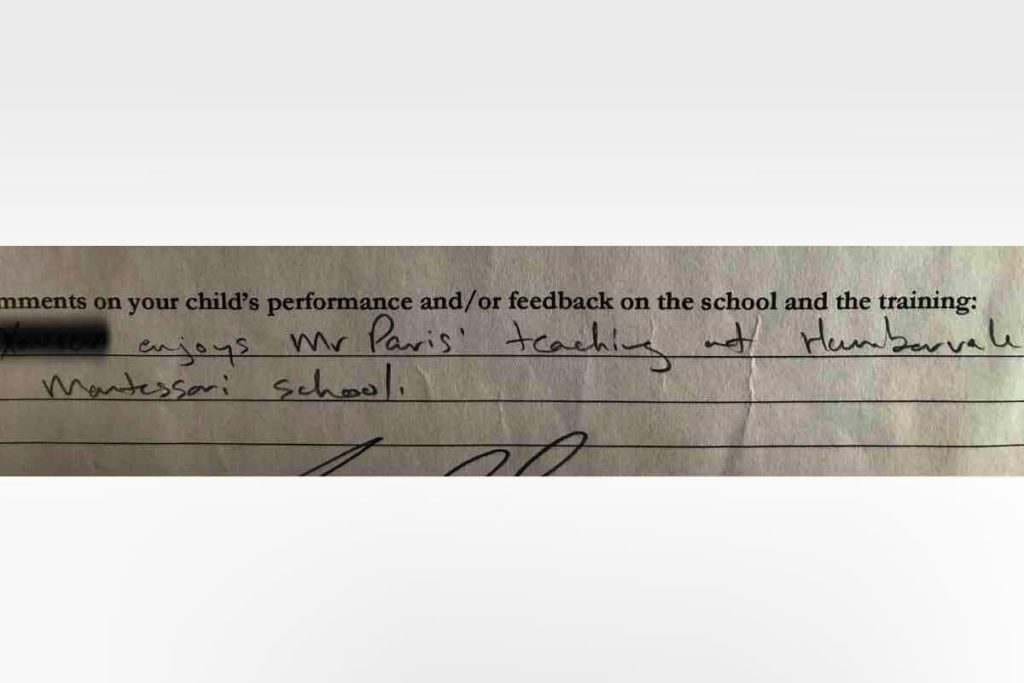 mments on your child's performance and/or feedback on the school and the training:
enjoys Mr Paris' teaching at Humbervale
Montessori school.